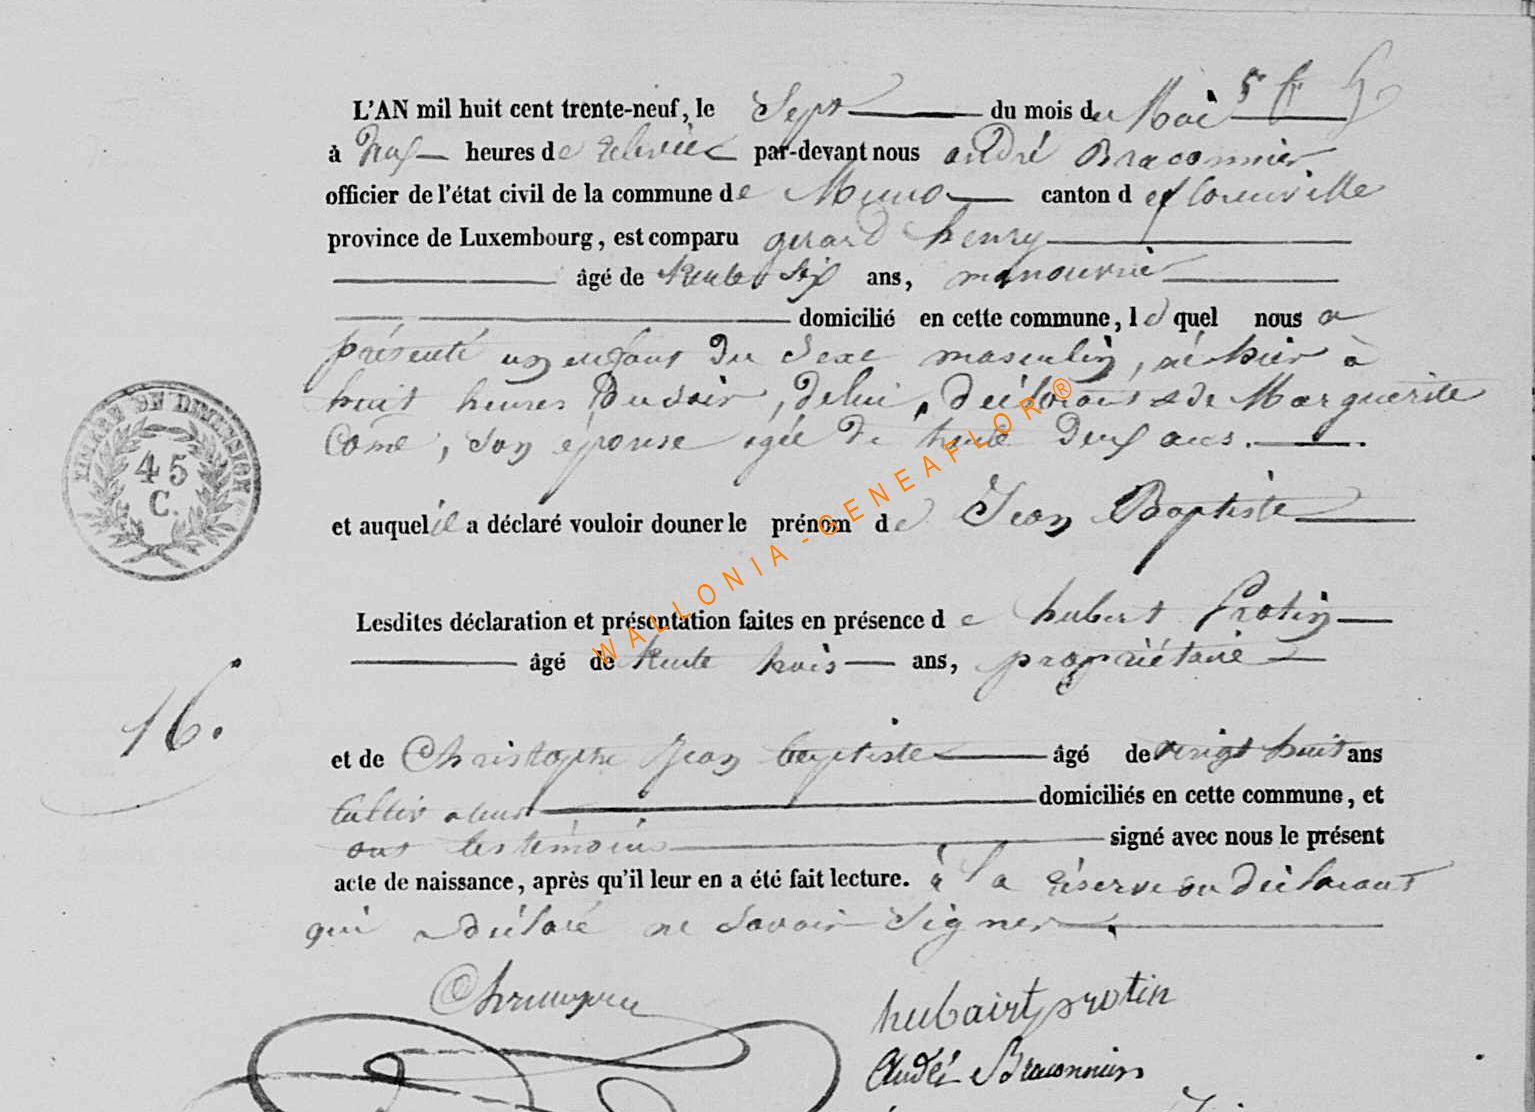 L'AN mil huit cent trente-neuf, le Sept du mois du Mai
à neuf heures de relevée par-devant nous andré Braconnier
officier de l'état civil de la commune de Muno canton de florenville
province de Luxembourg, est comparu gerard henry
âgé de trente six ans, manouvrier
domicilié en cette commune, lequel nous a
présenté un enfant du sexe masculin, né hier à
huit heures du soir, de lui, déclarant et de Marguerite
Come, son épouse agée de trente deux ans.
et auquel il a déclaré vouloir donner le prénom de Jean Baptiste
Lesdites déclaration et présentation faites en présence de hubert Protin
âgé de trente trois ans, propriétaire
et de Christophe Jean baptiste âgé de vingt huit ans
cultivateur domiciliés en cette commune, et
ont les témoins signé avec nous le présent
acte de naissance, après qu'il leur en a été fait lecture. à la réserve du déclarant
qui a déclaré ne savoir signer
16.
TIMBRE DE DIMENSION
45
C.
hubairt protin
André Braconnier
WALLONIA-GENEAFLOR®